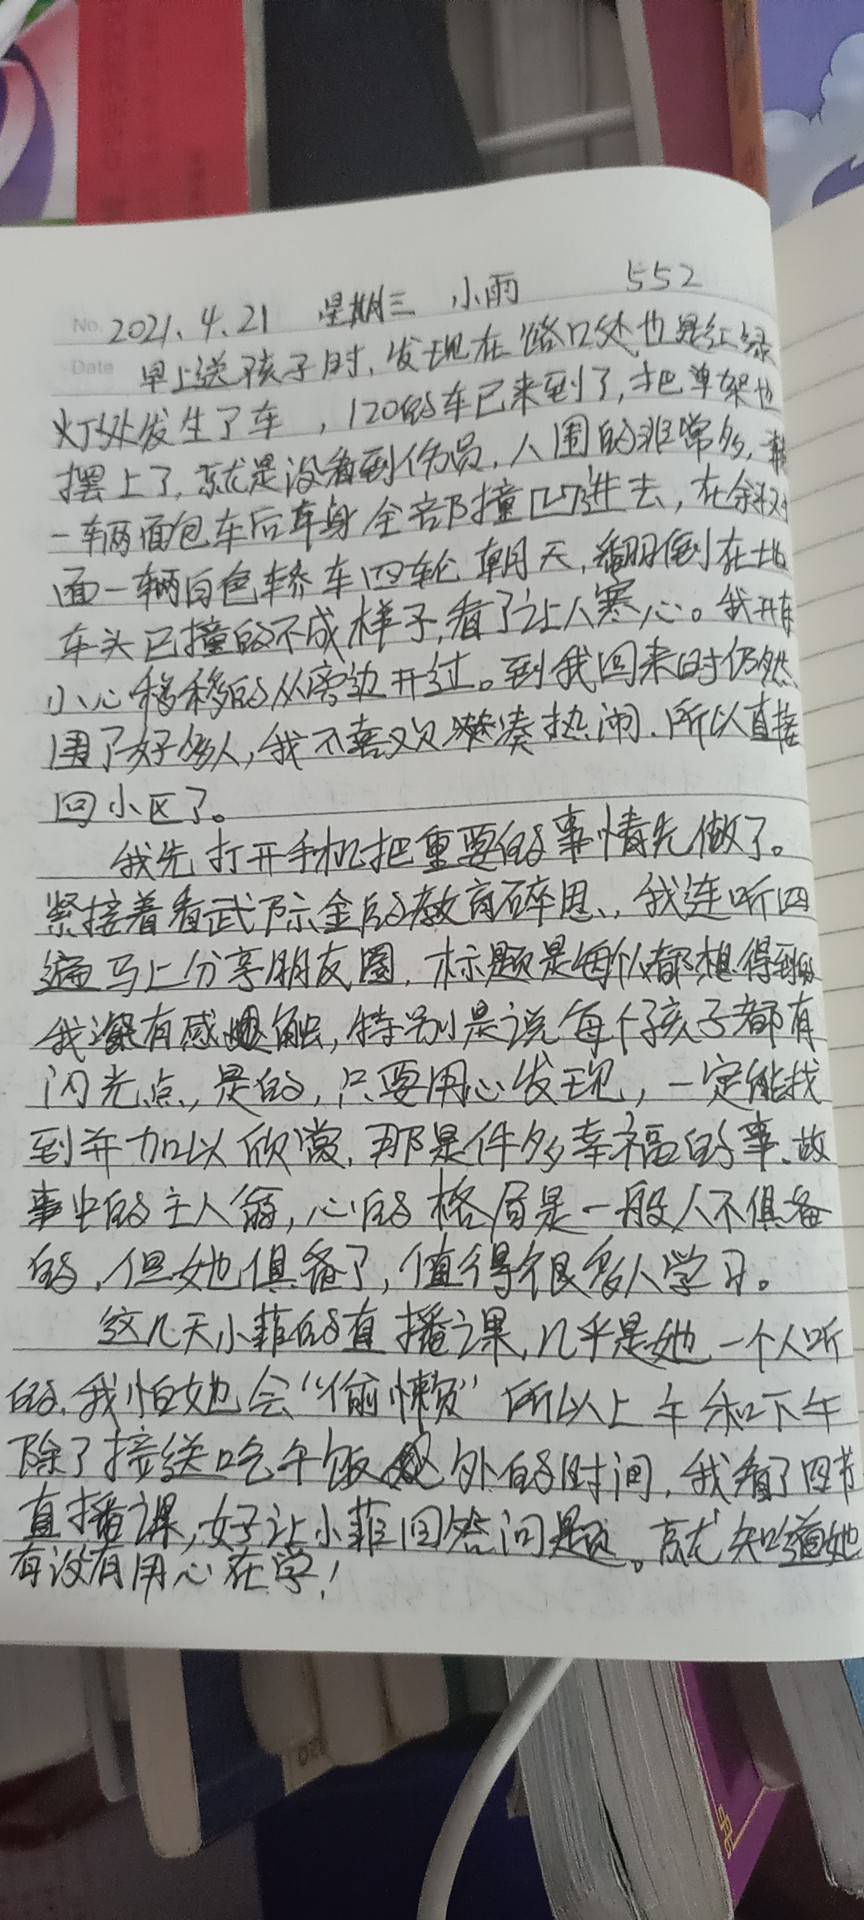 No. 2021.4.21 星期三 小雨 552
Date 早上送孩子时,发现在路口处也是红绿
灯处发生了车 ,120的车已来到了,把单架也
摆上了,就是没看到伤员,人围的非常多,
一辆面包车后车身全部撞凹进去,在斜对
面一辆白色轿车四轮朝天,翻倒在地
车头已撞的不成样子,看了让人寒心。我开车
小心移移的从旁边开过。到我回来时仍然
围了好多人,我不喜欢凑热闹.所以直接
回小区了。
我先打开手机把重要的事情先做了。
紧接着看武际金的教育碎思、,我连听四
遍马上分享朋友圈,标题是每个人都想得到的
我深有感触,特别是说每个孩子都有
闪光点,是的,只要用心发现,一定能找
到并加以欣赏,那是件多幸福的事、故
事中的主人翁,心的格局是一般人不俱备
的,但她俱备了,值得很多人学习。
这几天小菲的直播课,几乎是她一个人听
的,我怕她会“偷懒”所以上午和下午
除了接送吃午饭之外的时间,我看了四节
直播课,好让小菲回答问题。就知道她
有没有用心在学!